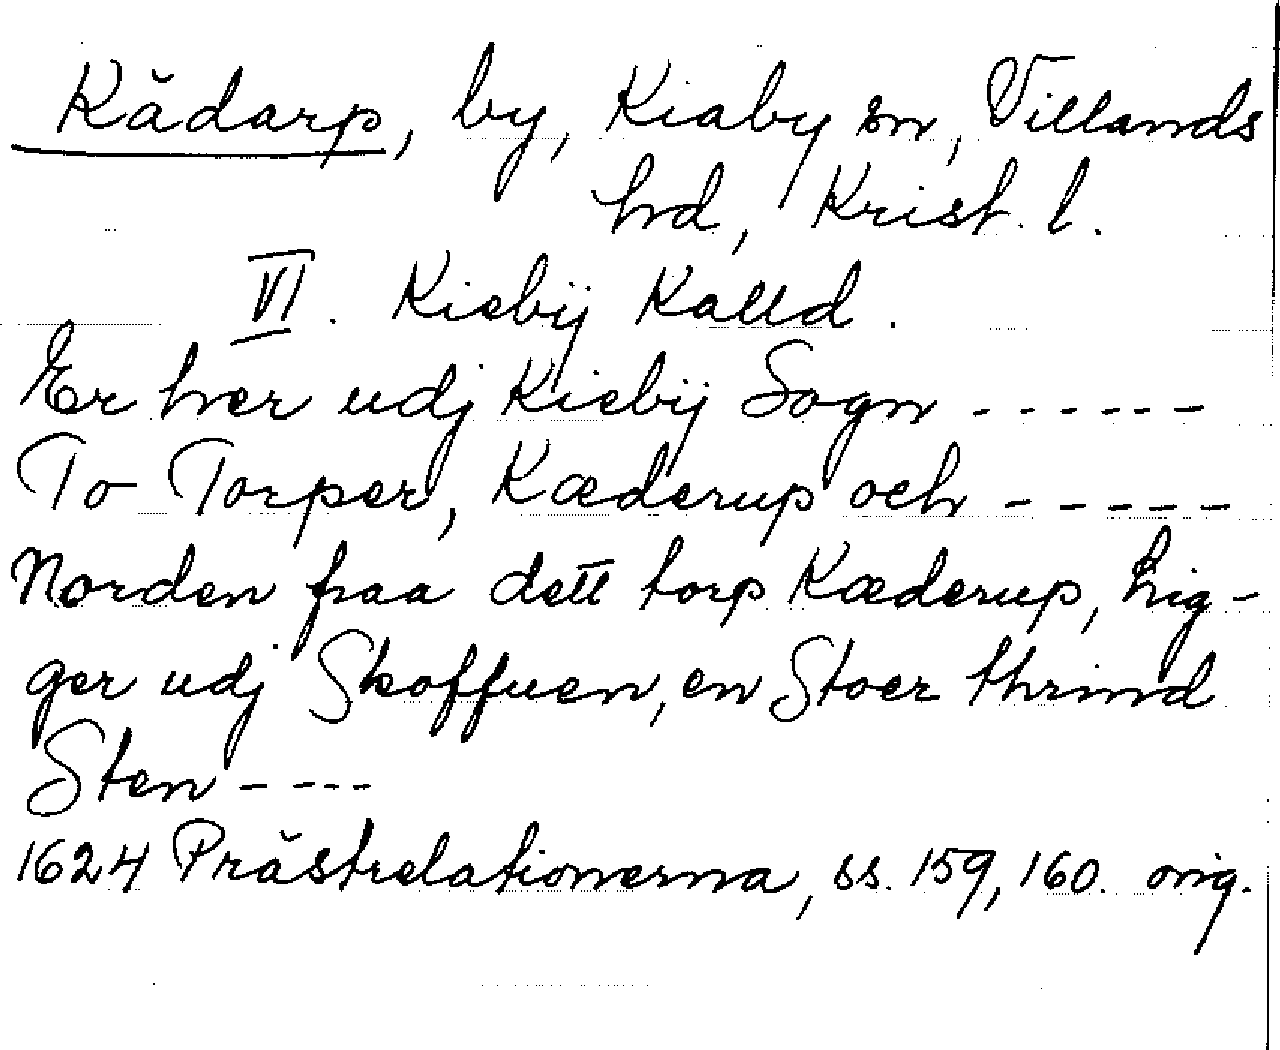 Kädarp, by, Kiaby sn, Villands
hrd, Krist. l.
VI. Kiebÿ Kalld.
Er hver udj Kiebÿ Sogn ------
To Torper, Kæderup och -----
Norden fraa dett torp Kæderup, Lig-
ger udj Skoffuen, en Stoer thrind
Sten ----
1624 Prästrelationerna, ss. 159, 160. orig.